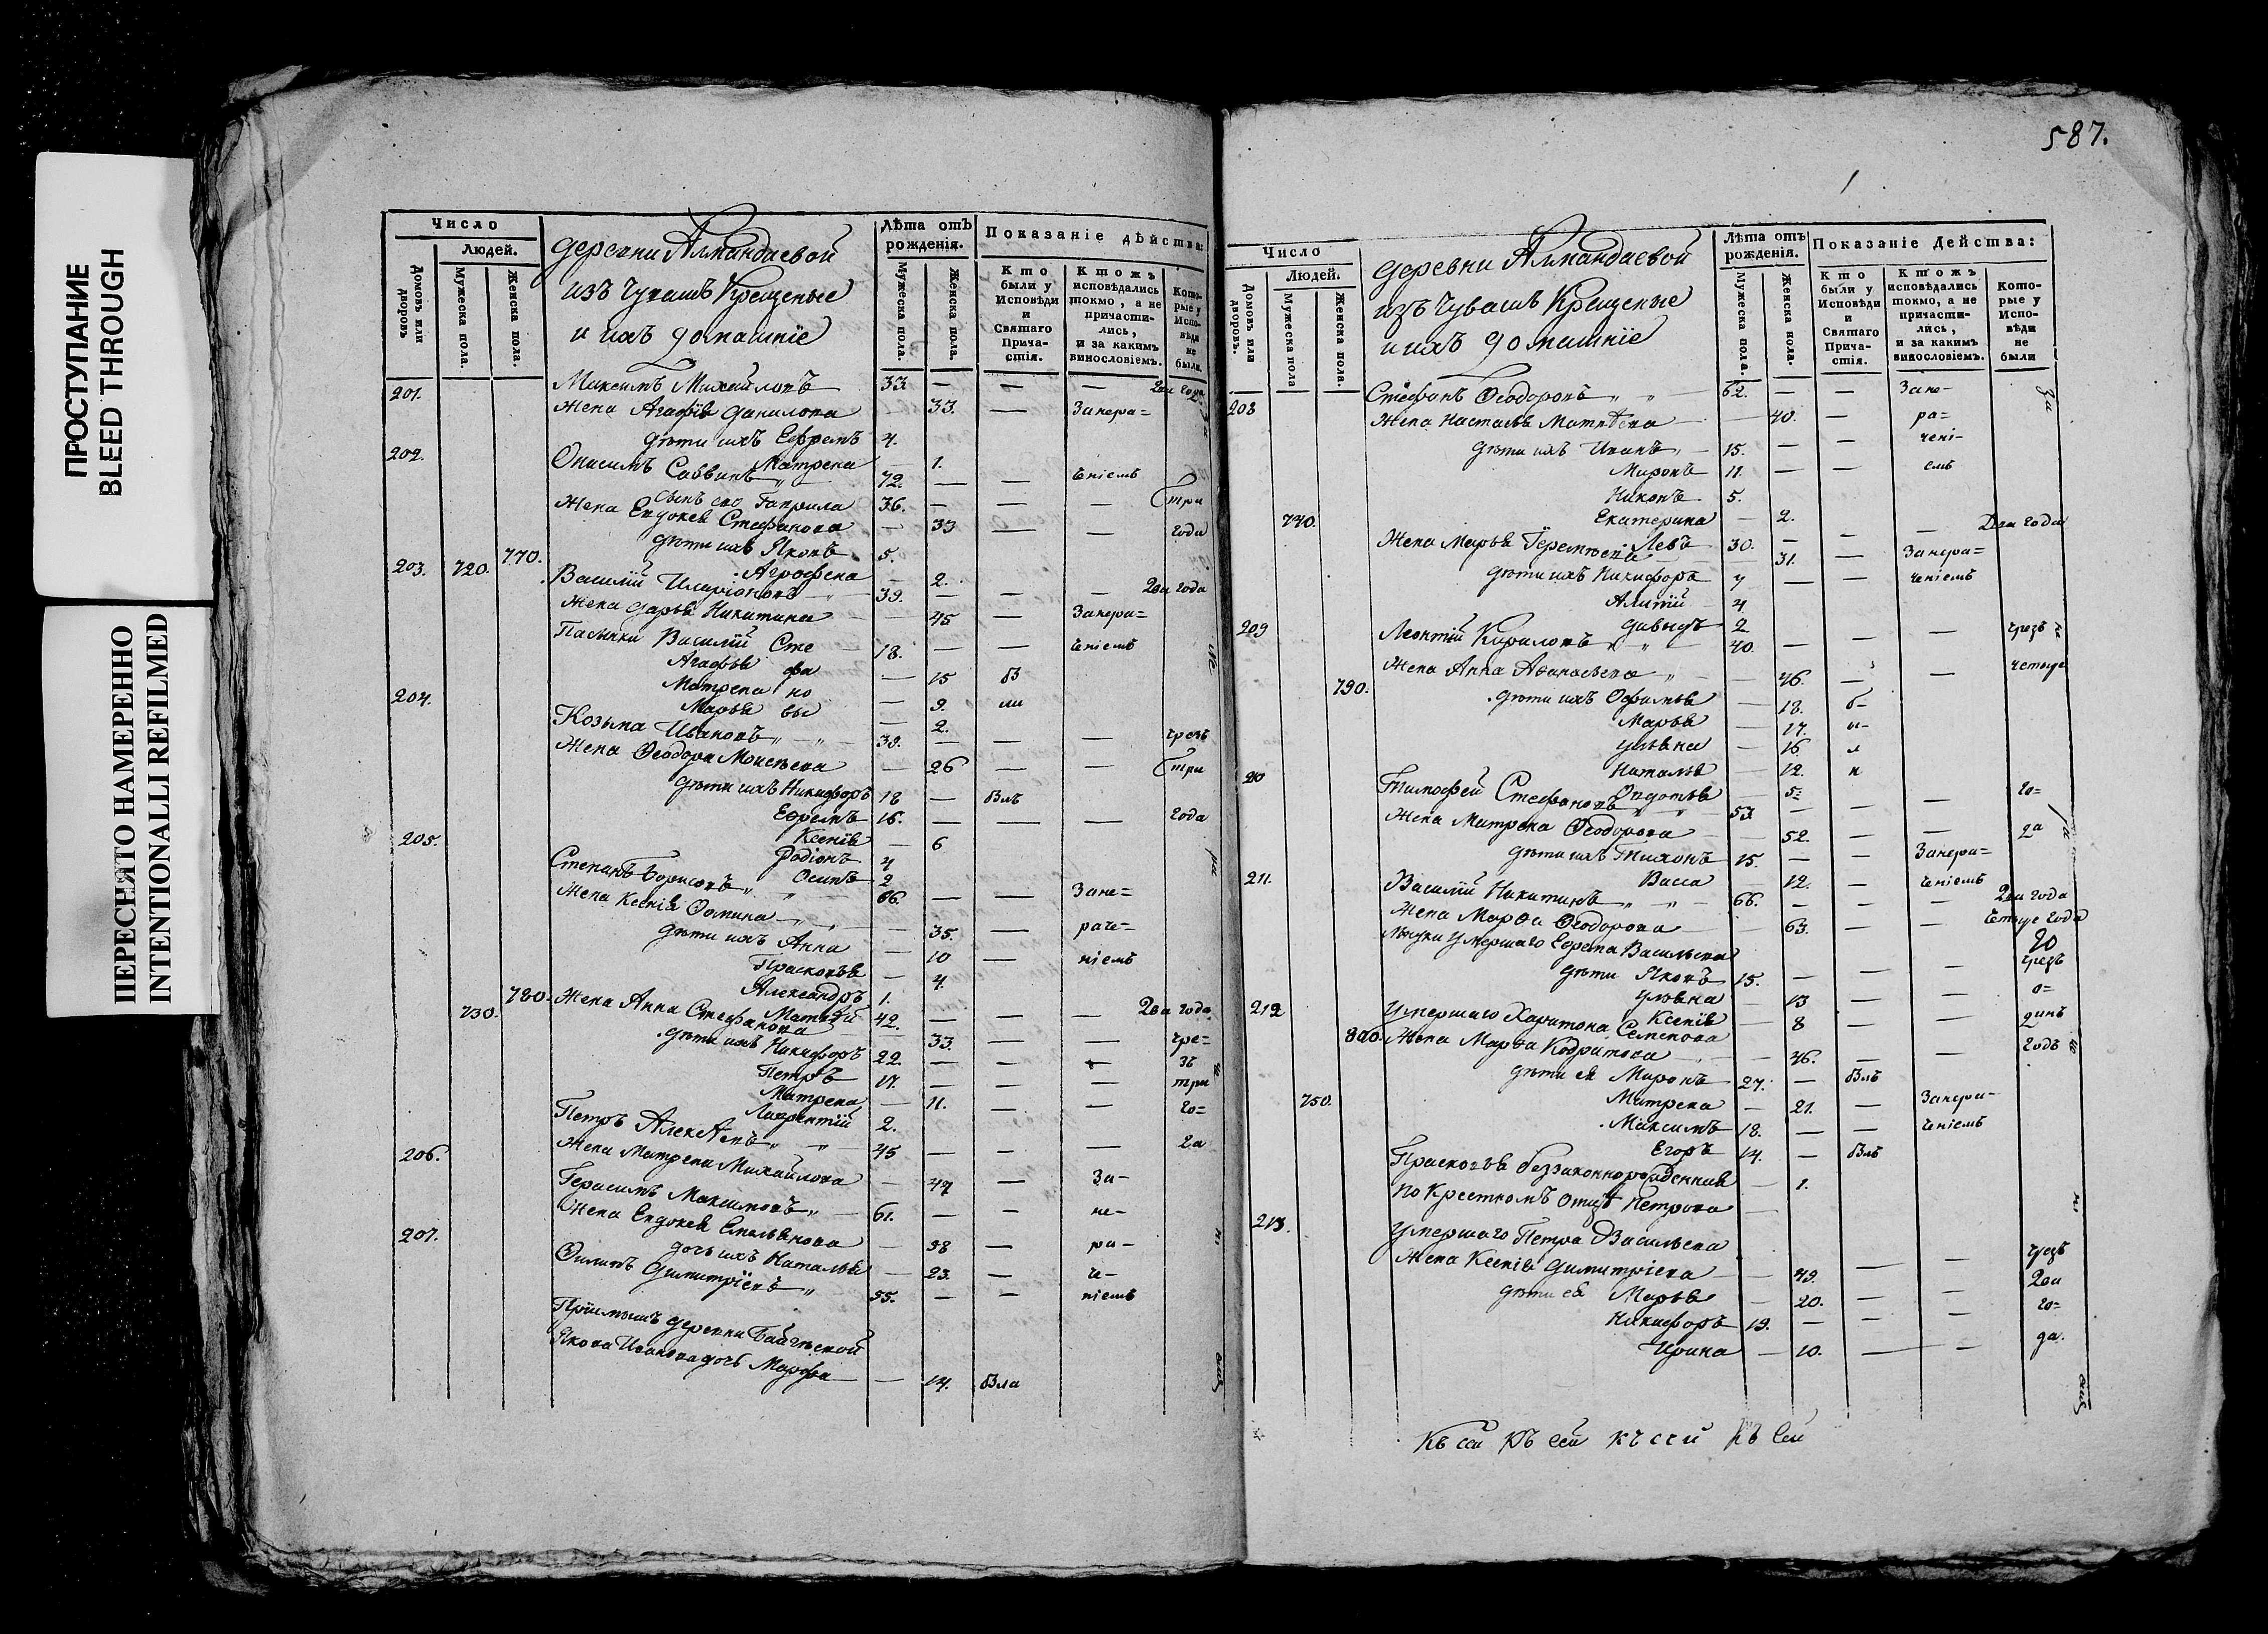 ПРОСТУПАНИЕ
BLEED THROUGH
ПЕРЕСНЯТО НАМЕРЕННО
INTENTIONALLI REFILMED
Число
Людей.
Домовъ или дворовъ
Мужеска пола.
Женска пола.
деревни Алмандаевой
изъ Чувашъ Крещеные
и ихъ домашніе
Лѣта отъ рожденія.
Мужеска пола.
Женска пола.
Показаніе дѣйства:
Кто были у Исповѣди и Святаго Причастія.
Ктожъ исповѣдались токмо, а не причастились, и за какимъ винословіемъ.
Которые у Исповѣди не были.
201. Максимъ Михайловъ 33 — — — два года
Жена Агафія Данилова 33. — Занера=
дѣти ихъ Ефремъ 4.
Матрена — 1.
202. Онисимъ Саввинъ 72. — — ченіемъ
сынъ его Гаврила 36. — — — три
Жена Евдокея Стефанова — 33 — — года
дѣти ихъ Яковъ 5.
770. Аграфена — 2.
203. 720. Василій Иларіоновъ 39. — — — два года
Жена Дарья Никитина — 45 — Занера=
Пасынки Василій Сте 18. — — ченіемъ
Агафья фа — 15 бы
Матрена но — 9. ли
Марья вы — 2.
204. Козьма Ивановъ 39. — — — чрезъ
Жена Ѳеодора Моисѣева — 26 — — три
дѣти ихъ Никифоръ 18 — былъ
Ефремъ 16. — — — года
Ксенія — 6
Родіонъ 4
Осипъ 2
205. Степанъ Борисовъ 66. — — Зане=
Жена Ксенія Ѳомина — 35. — раче=
дѣти ихъ Анна — 10 — ніемъ
Прасковья — 4.
Александръ 1.
730. Матвѣй 42. — — — Два года
780. Жена Анна Стефанова — 33. — — чре=
дѣти ихъ Никифоръ 22. — — — зъ
Петръ 17. — — — три
Матрена — 11. — — го=
Лаврентій 2.
206. Петръ Алексѣевъ 45 — — — да
Жена Матрена Михайлова — 47 — За-
Герасимъ Максимовъ 61. — — не-
Жена Евдокея Емельянова — 58 — ра-
дочь ихъ Наталья — 23. — че-
207. Филипъ Димитріевъ 55. — — ніемъ
Пріимышъ деревни
Якова Иванова дочь Марфа — 14. была
587.
Число
Людей.
Домовъ или дворовъ.
Мужеска пола
Женска пола.
деревни Алмандаевой
изъ Чувашъ Крещеные
и ихъ домашніе
Лѣта отъ рожденія.
Мужеска пола.
Женска пола.
Показаніе Действа:
Кто были у Исповѣди и Святаго Причастія.
Ктожъ исповѣдались токмо, а не причастились, и за какимъ винословіемъ.
Которые у Исповѣди не были
208 Стефанъ Ѳеодоровъ 62. — — Зане-
Жена Настасья Матвѣева — 40. — ра=
дѣти ихъ Иванъ 15. — — чені-
Миронъ 11. — — емъ
Никонъ 5.
Екатерина — 2.
740. Левъ 30. — — — Два года
Жена Марья Геремѣева — 31. — Занера=
дѣти ихъ Никифоръ 7 — — ченіемъ
Алипій 4
Давыдъ 2
209 Леонтій Кириловъ 40. — — — чрезъ
Жена Анна Аѳанасьева — 46. — — четыре
790. дѣти ихъ Офимья — 18. б-
Марья — 17. ы-
Ульяна — 16 л
Наталья — 12. и
Авдотья — 5=
210 Тимофей Стефановъ 53 — — — го=
Жена Матрена Ѳеодорова — 52. — — да
дѣти ихъ Тихонъ 15. — — Занера=
Васса 12. — ченіемъ
211. Василій Никитинъ 66. — — — два года
Жена Марфа Ѳеодорова — 63. — — четыре года
Внуки Умершаго Ефрема Васильева
дѣти Яковъ 15. — — — чрезъ
Ульяна — 13 — — о=
Ксенія — 8 — — динъ
212 Умершаго Харитона Семенова годъ
800. Жена Марфа Кодратова — 46. — —
дѣти ея Миронъ 27. — былъ
Матрена — 21. — Занера-
750. Максимъ 18. — — ченіемъ
Егоръ 14. — былъ
Прасковья беззаконнорожденная — 1.
по Крестномъ отцѣ Петрова —
213. Умершаго Петра Васильева
Жена Ксенія Димитріева — 49. — — чрезъ
дѣти ея Марья — 20. — — два
Никифоръ 19. — — — го=
Ирина — 10. — — да.
Къ сей Къ сей къ сей Къ сей